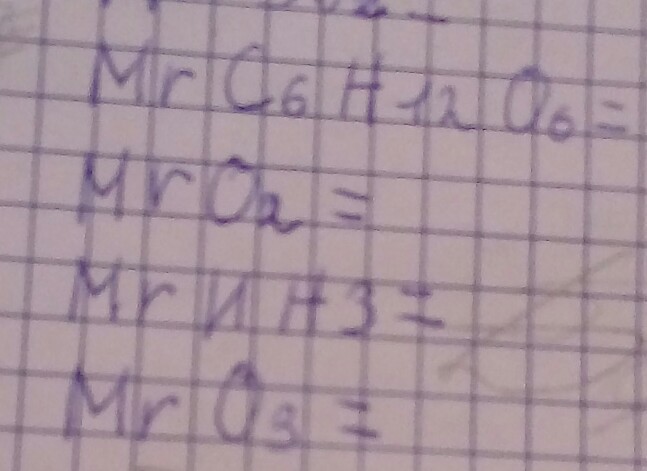 Mr C6 H12 O6 =
Mr O2 =
Mr NH3 =
Mr O3 =